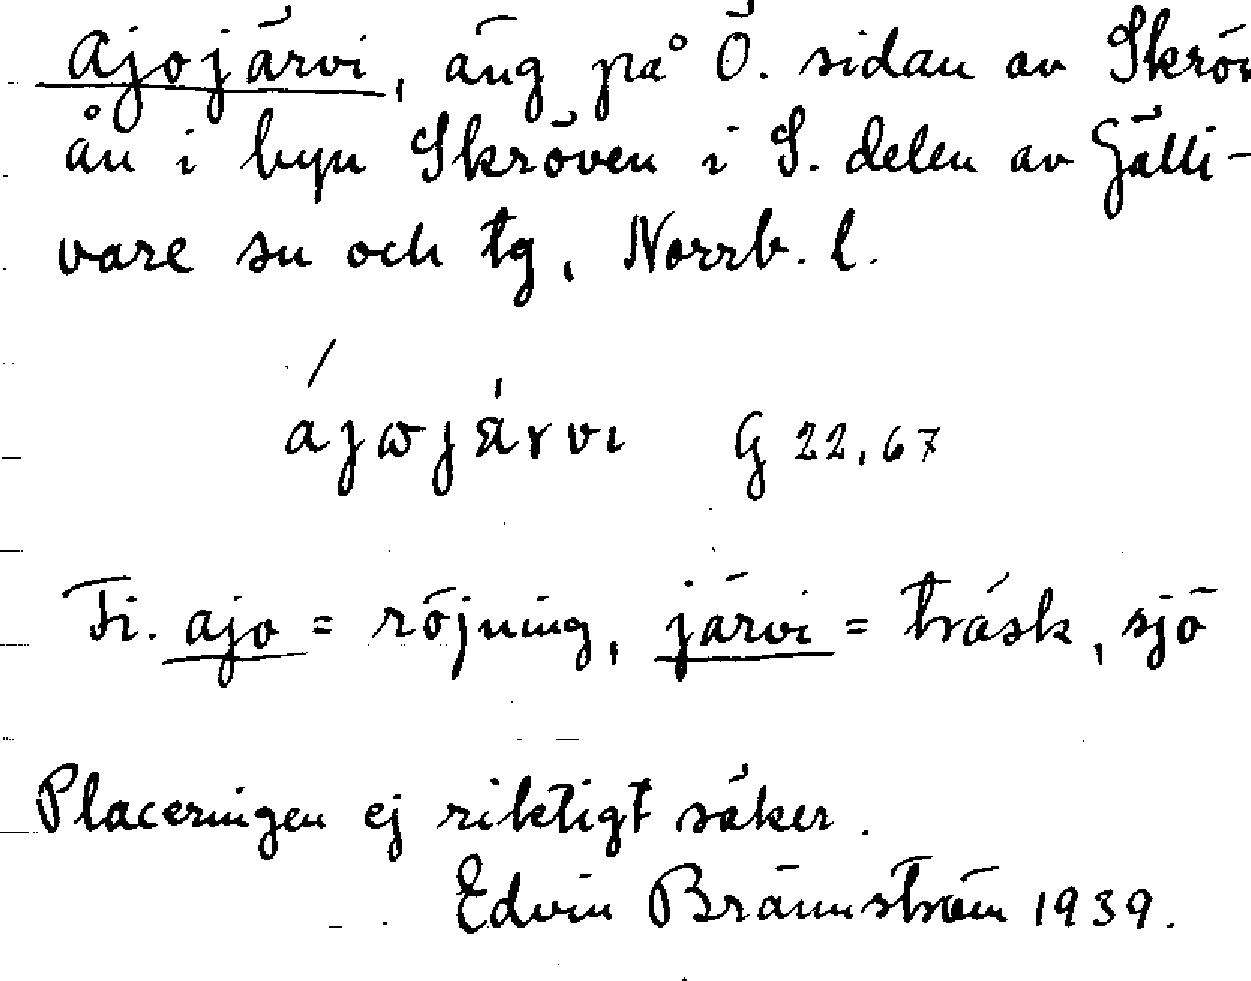 Ajojärvi, äng på Ö. sidan av Skröv
ån i byn Skröven i S. delen av Gälli-
vare sn och tg, Norrb. l.
ájωjä́rvı G 22,67
Fi. ajo = röjning, järvi = träsk, sjö
Placeringen ej riktigt säker.
Edvin Brännström 1939.